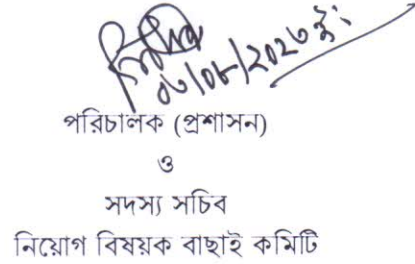 ০৮/২০২৩ ইং
পরিচালক (প্রশাসন)
ও
সদস্য সচিব
নিয়োগ বিষয়ক বাছাই কমিটি